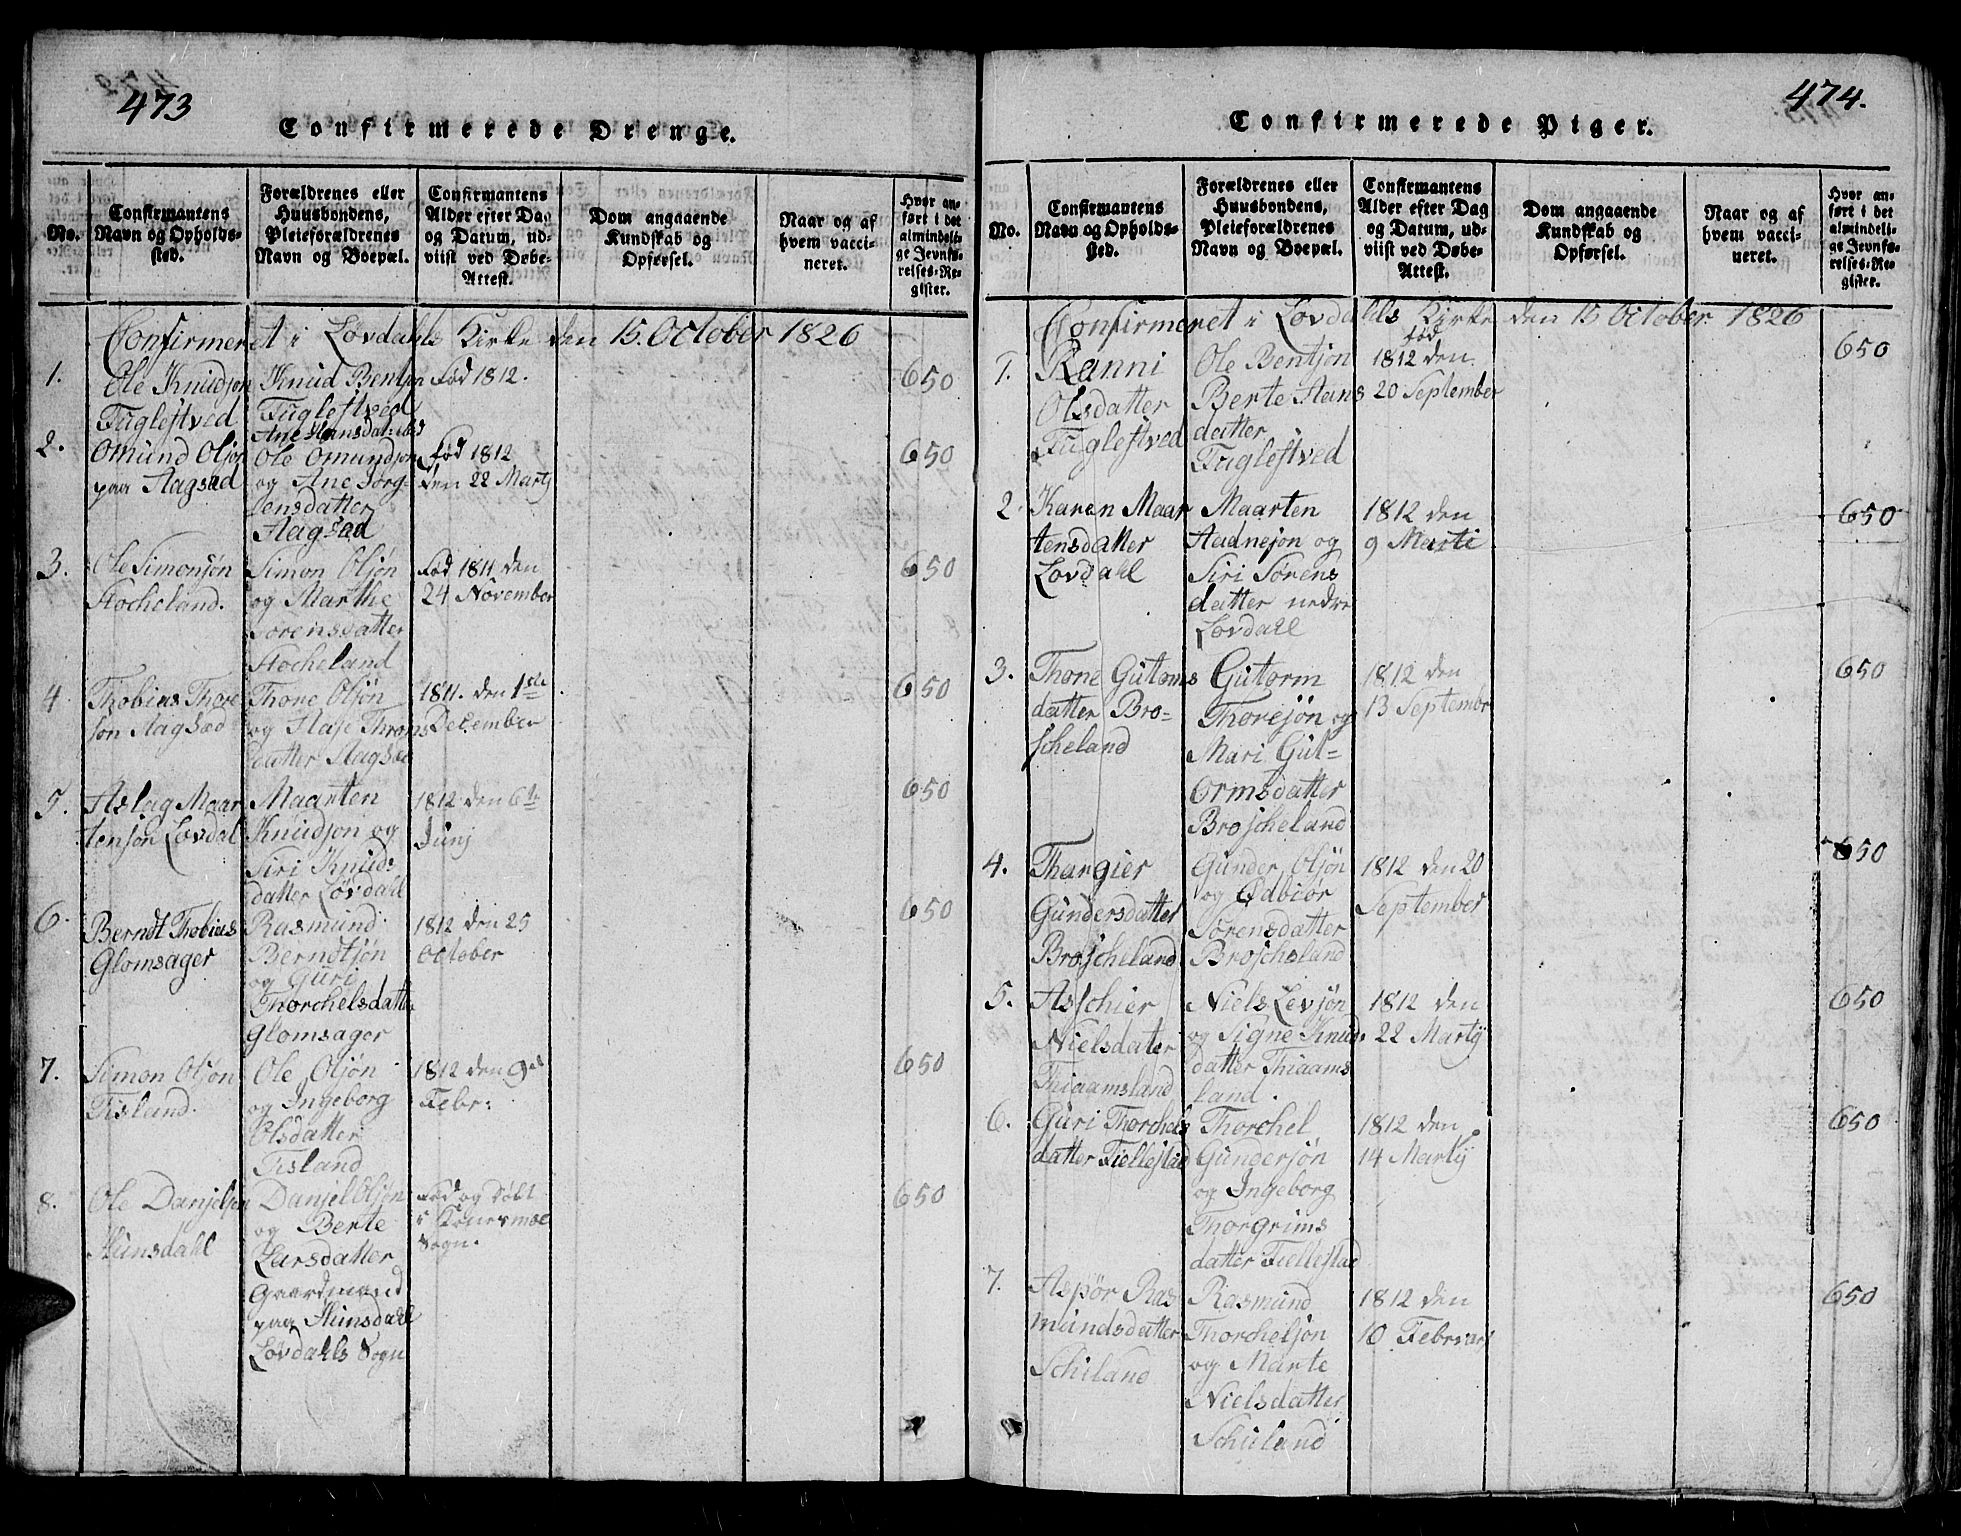 473
Confirmerede Drenge.
No.
Confirmantens
Navn og Opholds-
sted.
Forældrenes eller
Huusbondens,
Pleieforældrenes
Navn og Boepæl.
Confirmantens
Alder efter Dag
og Datum, ud-
viist ved Døbe-
Attest.
Dom angaaende
Kundskab og
Opførsel.
Naar og af
hvem vacci-
neret.
Hvor an-
ført i det
almindeli-
ge Jevnfø-
relses-Re-
gister.
Confirmeret i Lovdahls Kirke den 15. October 1826
1.
Ole Knudsøn
Fuglestved
Knud Bentsn
Fuglestved
Ane Hansdatter
Fød 1812.
650
2.
Omund Olsøn
paa Aagsæd
Ole Omundsøn
og Ane Jørg-
tensdatter
Aagsæd
Fød 1812
den 22 Martj
650
3.
Ole Simonsøn
Stocheland.
Simon Olsøn
og Marthe
Sørensdatter
Stocheland
Fød 1811 den
24 November
650
4
Thobias Thore
søn Aagsæd
Thore Olsøn
og Aase Throns
datter Aagsæ
1811. den 1ste
December
650
5.
Aslag Maar
tensøn Lovdal
Maarten
Knudsøn og
Siri Knuds-
datter Løvdahl
1812 den 6te
Junj
650
6.
Berndt Thobias
Glomsager
Rasmund
Berndtsøn
og Guri
Thorchelsdatter
Glomsager
1812 den 25
October
650
7.
Simon Olsøn
Tisland.
Ole Olsøn
og Ingeborg
Olsdatter
Tisland
1812 den 9de
Febr:
650
8.
Ole Danjelsen
Hunsdahl
Danjel Olsøn
og Berte
Larsdatter
Gaardmand
paa Hunsdahl
Lovdahls Sogn
Fød og Døbt
i Konesmoe
Sogn.
650
474.
Confirmerede Piger.
No.
Confirmantens
Navn og Opholds-
sted.
Forældrenes eller
Huusbondens,
Pleieforældrenes
Navn og Boepæl.
Confirmantens
Alder efter Dag
og Datum, ud-
viist ved Døbe-
Attest.
Dom angaaende
Kundskab og
Opførsel.
Naar og af
hvem vacci-
neret.
Hvor an-
ført i det
almindeli-
ge Jevnfø-
relses-Re-
gister.
Confirmeret i Lovdahls Kirke den 15 October 1826
1.
Ranni
Olsdatter
Fuglestved
Ole Bentsøn
Berte Hans
datter
Fuglestved
fød
1812 den
20 September
650
2
Karen Maar
tensdatter
Lovdahl
Maarten
Aadnesøn og
Siri Sørens
datter nedre
Lovdahl
1812 den
9 Marti
650
3.
Thone Guttoms
datter Bro-
scheland
Guttorm
Thoresøn og
Mari Gut-
ormsdatter
Broscheland
1812 den
13 September
650
4.
Thargier
Gundersdatter
Broscheland
Gunder Olsøn
og Ødbiør
Sørensdatter
Broscheland
1812 den 20
September
650
5.
Aschier
Nielsdater
Thiaamsland
Niels Levsøn
og Signe Knuds
datter Thiaams
land.
1812 den
22 Martij
650
6.
Guri Thorchels
datter Fiellestad
Thorchel
Gundersøn
og Ingeborg
Thorgrims
datter Fiellestad
1812 den
14 Martij
650
7.
Aspør Ras
mundsdatter
Schiland
Rasmund
Thorchelsøn
og Marte
Nielsdatter
Schiland
1812 den
10 Februarj
650